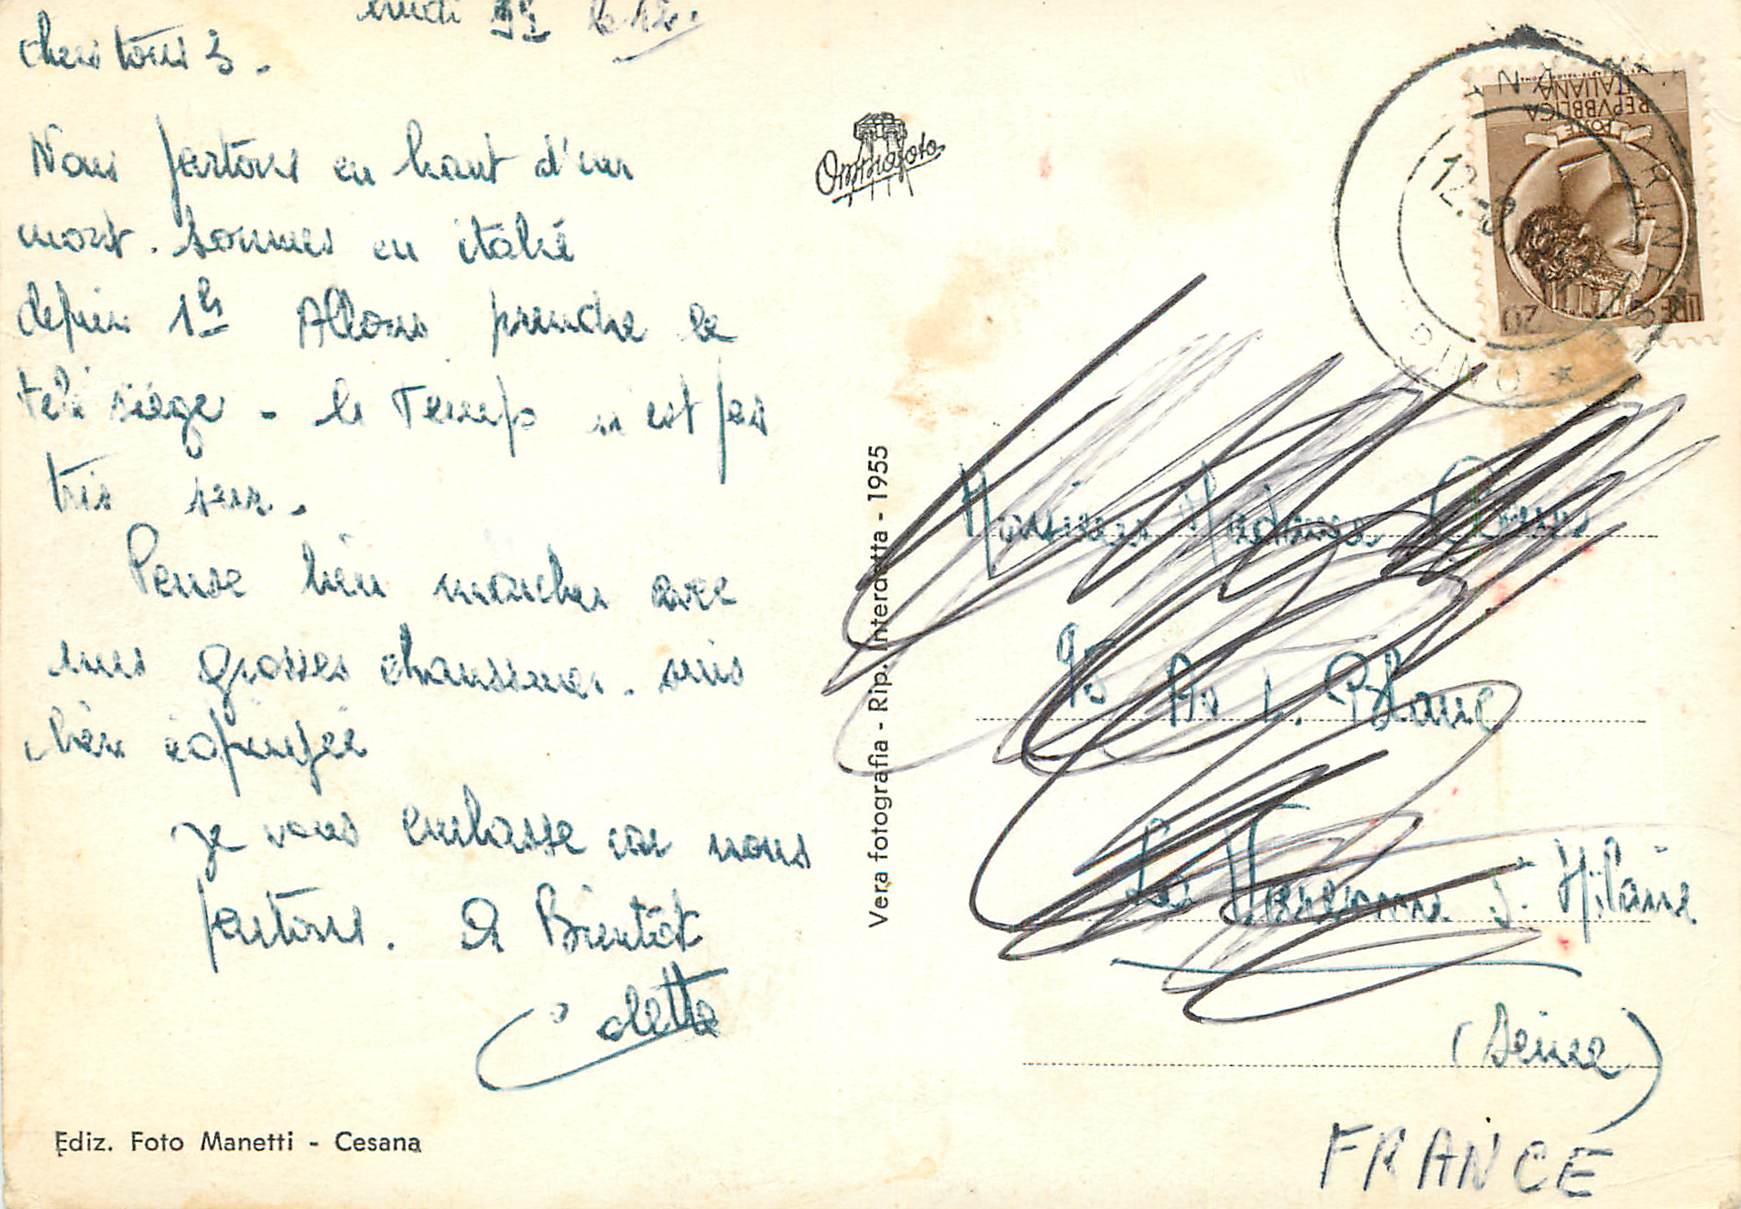 Chers tous 3.
Nous partons en haut d'un
mont. Sommes en italie
depuis 1h Allons prendre le
télésiège - le Temps n'est pas
très sur.
Pense bien marcher avec
mes grosses chaussures. suis
bien équipée
je vous embrasse car nous
partons. A Bientôt
Colette
Ediz. Foto Manetti - Cesana
Ommofoto
Vera fotografia - Rip. Interdetta - 1955
REPVBBLICA
ITALIANA
LIRE 20
12.
Monsieur Madame
95 Av L. Blanc
La Varenne S. Hilaire
(Seine)
FRANCE